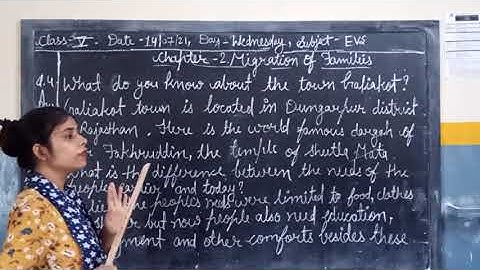 Class-V. Date-14/07/21, Day-Wednesday, Subject-EVS
Chapter-2. Migration of Families
Q.4 What do you know about the town Galiakot?
Galiakot town is located in Dungarpur district
Rajasthan. Here is the world famous dargah of
Fakhruddin, the temple of Sheetla Mata
What is the difference between the needs of the
people earlier and today?
people's needs were limited to food, clothes
but now people also need education,
and other comforts besides these